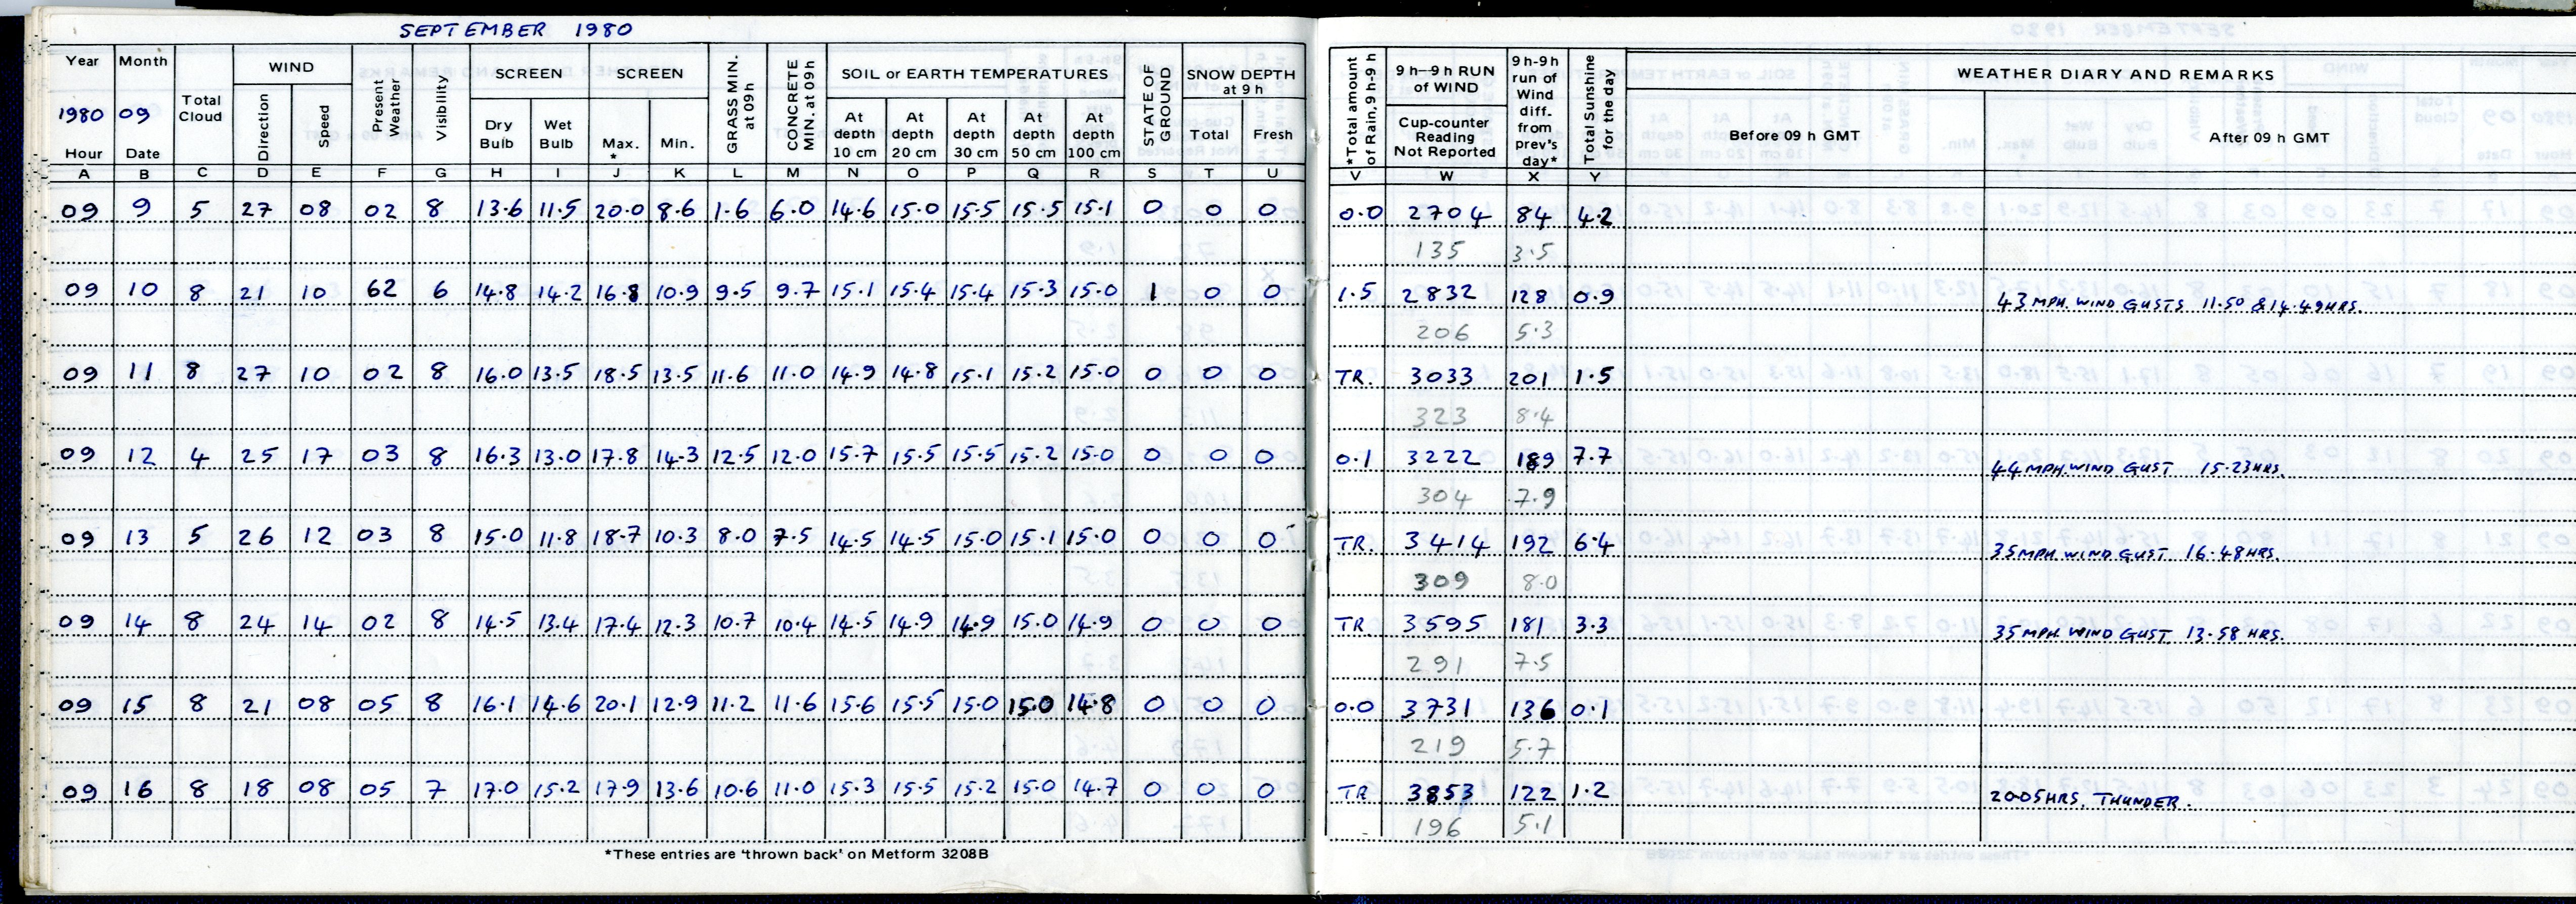 SEPTEMBER 1980
Year Month Total Cloud WIND Present Weather Visibility SCREEN SCREEN GRASS MIN. at 09h CONCRETE MIN. at 09h SOIL or EARTH TEMPERATURES STATE OF GROUND SNOW DEPTH at 9 h *Total amount of Rain, 9 h-9 h 9 h—9 h RUN of WIND 9 h-9h run of Wind diff. from prev's day* Total Sunshine for the day WEATHER DIARY AND REMARKS
1980 09 Direction Speed Dry Bulb Wet Bulb Max. * Min. At depth 10 cm At depth 20 cm At depth 30 cm At depth 50 cm At depth 100 cm Total Fresh Cup-counter Reading Not Reported Before 09 h GMT After 09 h GMT
Hour Date
A B C D E F G H I J K L M N O P Q R S T U V W X Y
09 9 5 27 08 02 8 13.6 11.5 20.0 8.6 1.6 6.0 14.6 15.0 15.5 15.5 15.1 0 0 0 0.0 2704 84 4.2
135 3.5
09 10 8 21 10 62 6 14.8 14.2 16.8 10.9 9.5 9.7 15.1 15.4 15.4 15.3 15.0 1 0 0 1.5 2832 128 0.9 43 MPH. WIND GUSTS 11.50 & 14.49 HRS.
206 5.3
09 11 8 27 10 02 8 16.0 13.5 18.5 13.5 11.6 11.0 14.9 14.8 15.1 15.2 15.0 0 0 0 TR. 3033 201 1.5
323 8.4
09 12 4 25 17 03 8 16.3 13.0 17.8 14.3 12.5 12.0 15.7 15.5 15.5 15.2 15.0 0 0 0 0.1 3222 189 7.7 44 MPH. WIND GUST 15.23 HRS.
304 7.9
09 13 5 26 12 03 8 15.0 11.8 18.7 10.3 8.0 7.5 14.5 14.5 15.0 15.1 15.0 0 0 0 TR. 3414 192 6.4 35 MPH WIND GUST 16.48 HRS.
309 8.0
09 14 8 24 14 02 8 14.5 13.4 17.4 12.3 10.7 10.4 14.5 14.9 14.9 15.0 14.9 0 0 0 TR. 3595 181 3.3 35 MPH. WIND GUST 13.58 HRS.
291 7.5
09 15 8 21 08 05 8 16.1 14.6 20.1 12.9 11.2 11.6 15.6 15.5 15.0 15.0 14.8 0 0 0 0.0 3731 136 0.1
219 5.7
09 16 8 18 08 05 7 17.0 15.2 17.9 13.6 10.6 11.0 15.3 15.5 15.2 15.0 14.7 0 0 0 TR 3853 122 1.2 2005 HRS. THUNDER.
196 5.1
*These entries are 'thrown back' on Metform 3208B